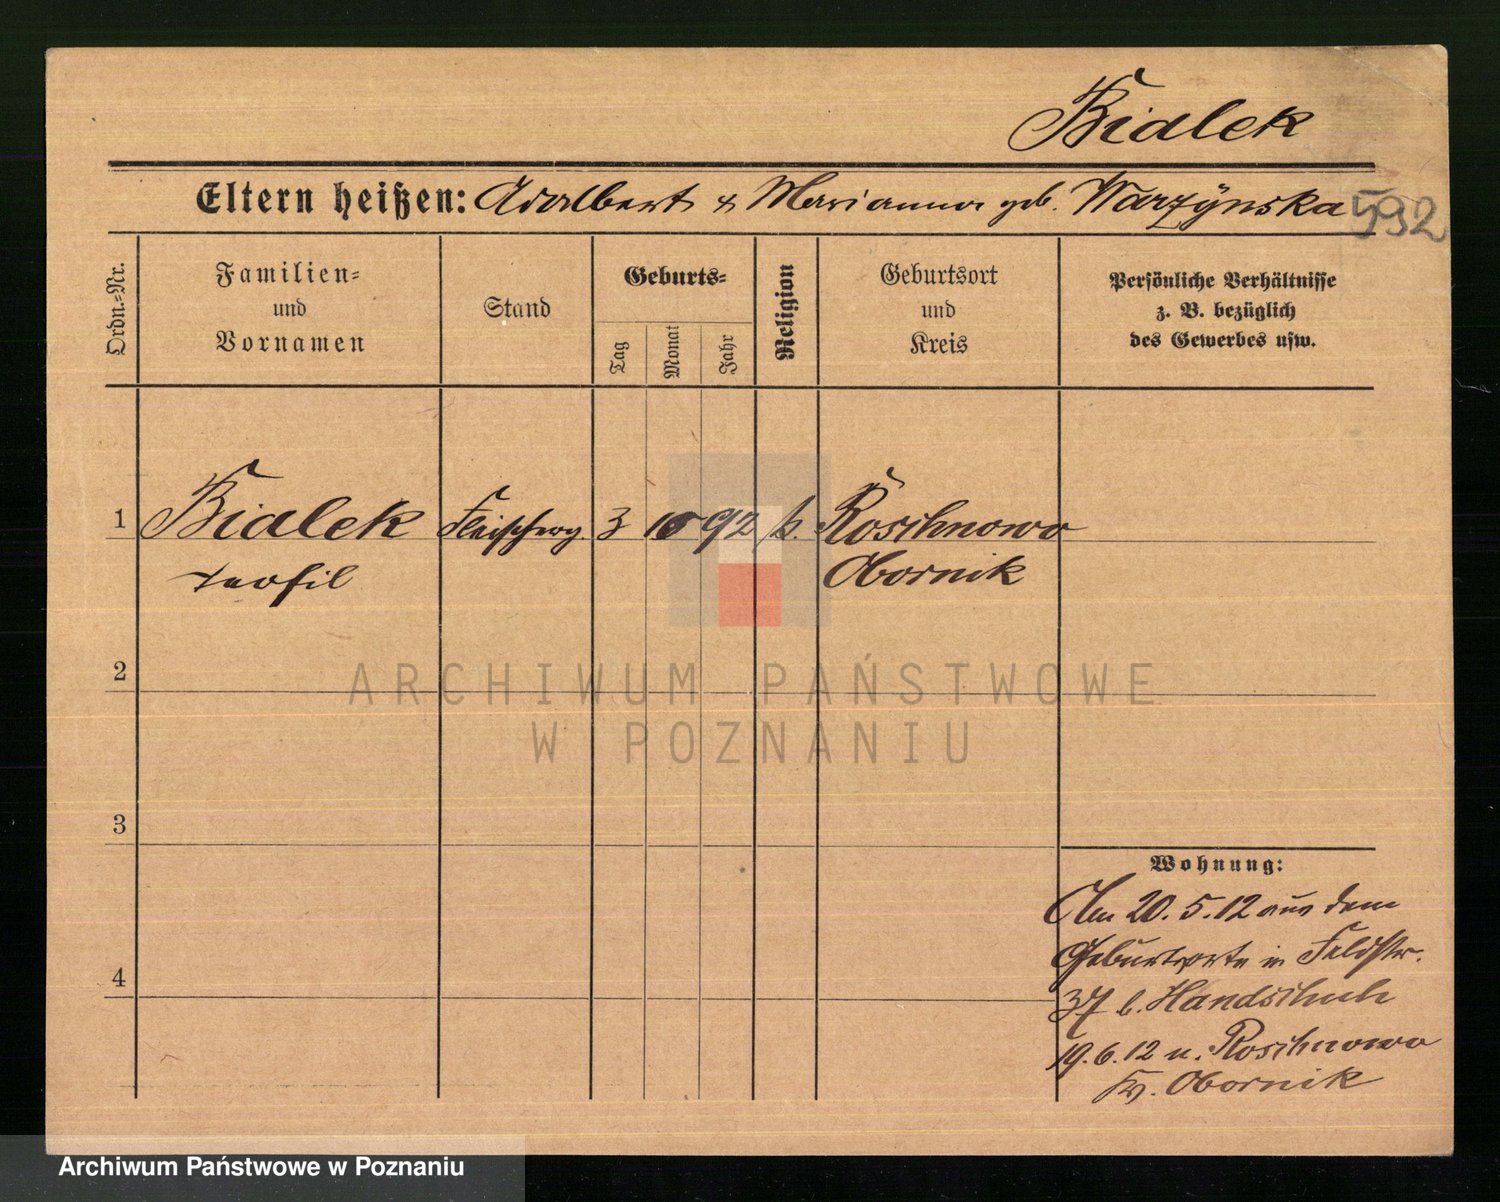 Bialek
Eltern heißen: Adalbert & Marianna geb. Warzÿnska
592
Ordn.=Nr.
Familien=
und
Vornamen
Stand
Geburts=
Tag
Monat
Jahr
Religion
Geburtsort
und
Kreis
Persönliche Verhältnisse
z. B. bezüglich
des Gewerbes usw.
1 Bialek Fleischerg. 3 10 92 k. Roschnowo
Teofil Obornik
2
ARCHIWUM PAŃSTWOWE
W POZNANIU
3
Wohnung:
Am 20.5.12 aus dem
Geburtsorte in Feldstr.
4
37 b. Handschuh
19.6.12 n. Roschnowo
Kr. Obornik
Archiwum Państwowe w Poznaniu